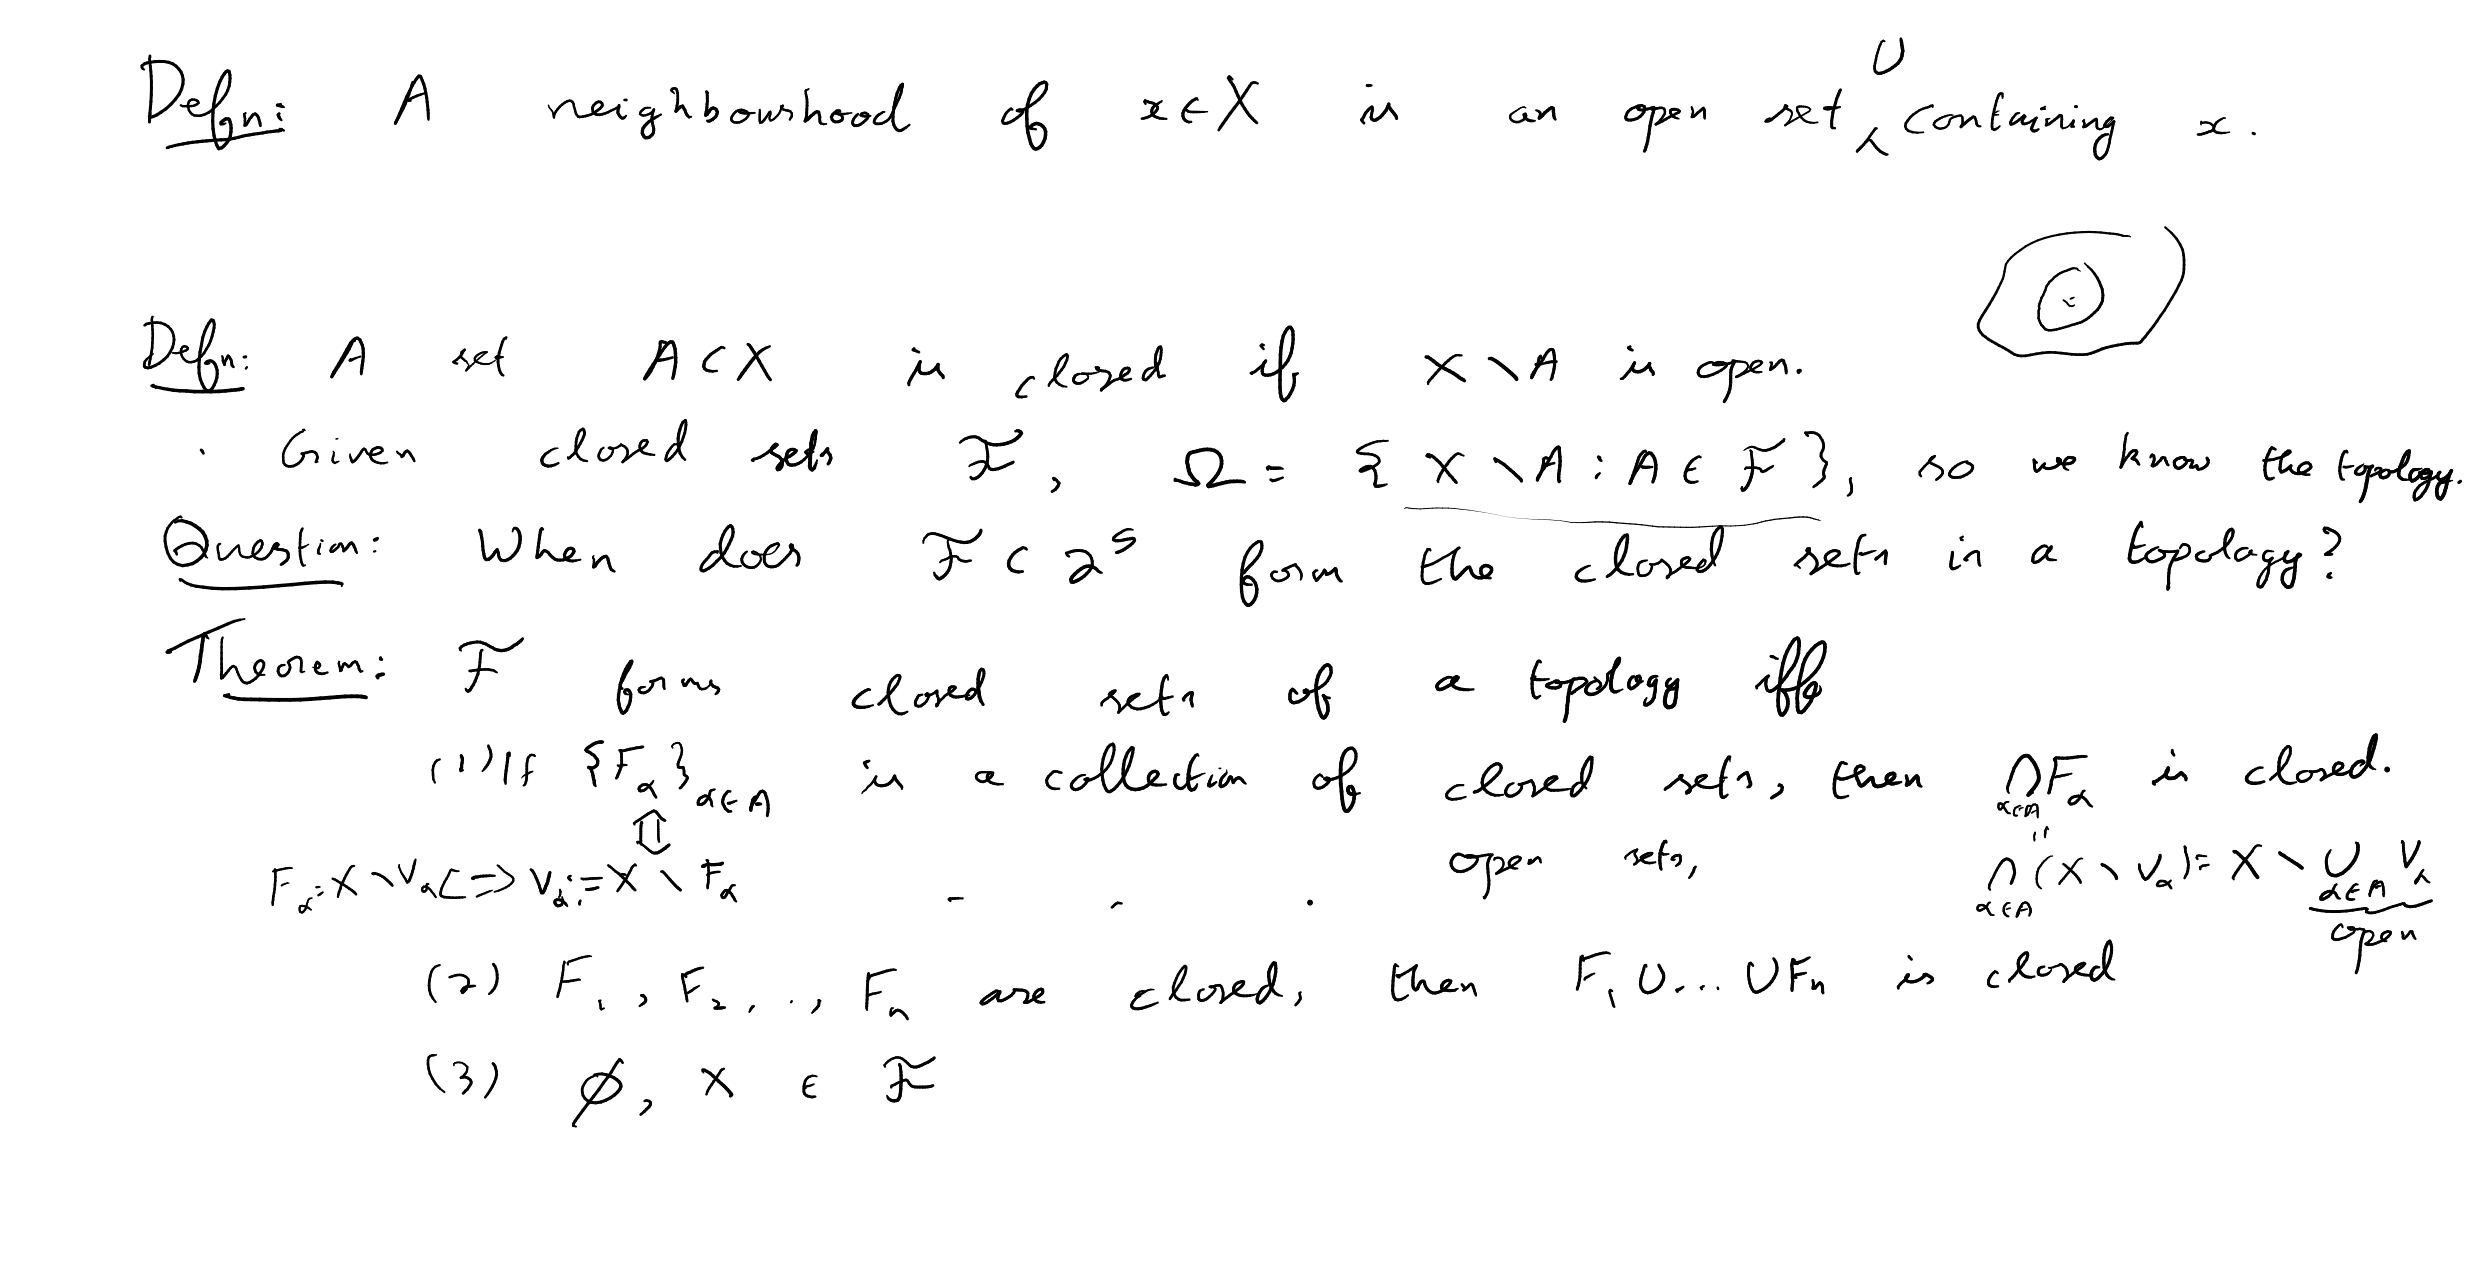 Defn: A neighbourhood of x∈X is an open set U containing x.
Defn: A set A⊂X is closed if X∖A is open.
· Given closed sets ℱ, Ω = {X∖A : A∈ℱ}, so we know the topology.
Question: When does ℱ⊂2^S form the closed sets in a topology?
Theorem: ℱ forms closed sets of a topology iff
(1) If {F_α}_{α∈A} is a collection of closed sets, then ∩_{α∈A} F_α is closed.
⇕ "
F_α = X∖V_α <=> V_α := X∖F_α - - . open sets, ∩_{α∈A} (X∖V_α) = X∖∪_{α∈A} V_α
open
(2) F_1, F_2, .., F_n are closed, then F_1 ∪ ... ∪ F_n is closed
(3) ∅, X ∈ ℱ